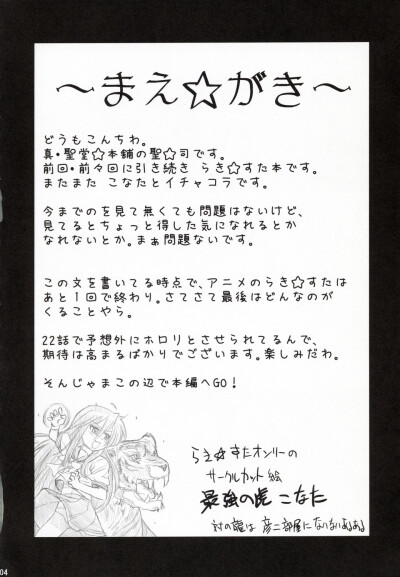 ～まえ☆がき～
どうもこんちわ。
真・聖堂☆本鋪の聖☆司です。
前回・前々回に引き続き らき☆すた本です。
またまた こなたとイチャコラです。
今までのを見て無くても問題はないけど、
見てるとちょっと得した気になれるとか
なれないとか。まぁ問題ないです。
この文を書いてる時点で、アニメのらき☆すたは
あと1回で終わり。さてさて最後はどんなのが
くることやら。
22話で予想外にホロリとさせられてるんで、
期待は高まるばかりでございます。楽しみだわ。
そんじゃまこの辺で本編へGO！
らき☆すたオンリーの
サークルカット絵
最強の虎 こなた
対の龍は彦二部屋に
04